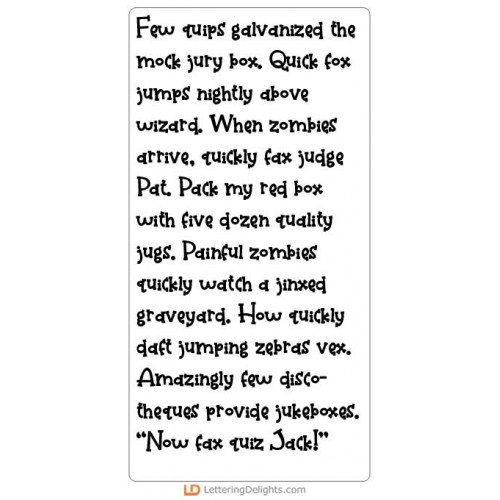 Few quips galvanized the
mock jury box. Quick fox
jumps nightly above
wizard. When zombies
arrive, quickly fax judge
Pat. Pack my red box
with five dozen quality
jugs. Painful zombies
quickly watch a jinxed
graveyard. How quickly
daft jumping zebras vex.
Amazingly few disco-
theques provide jukeboxes.
“Now fax quiz Jack!”
LD LetteringDelights.com